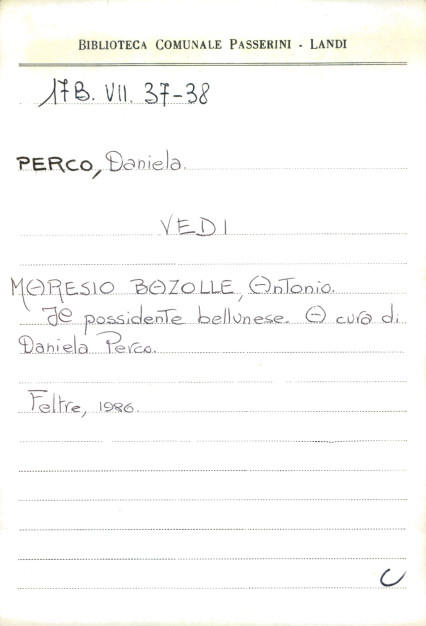 BIBLIOTECA COMUNALE PASSERINI - LANDI
17B. VII. 37-38
PERCO, Daniela.
VEDI
MARESIO BAZOLLE, Antonio.
Il possidente bellunese. A cura di
Daniela Perco.
Feltre, 1986.
C